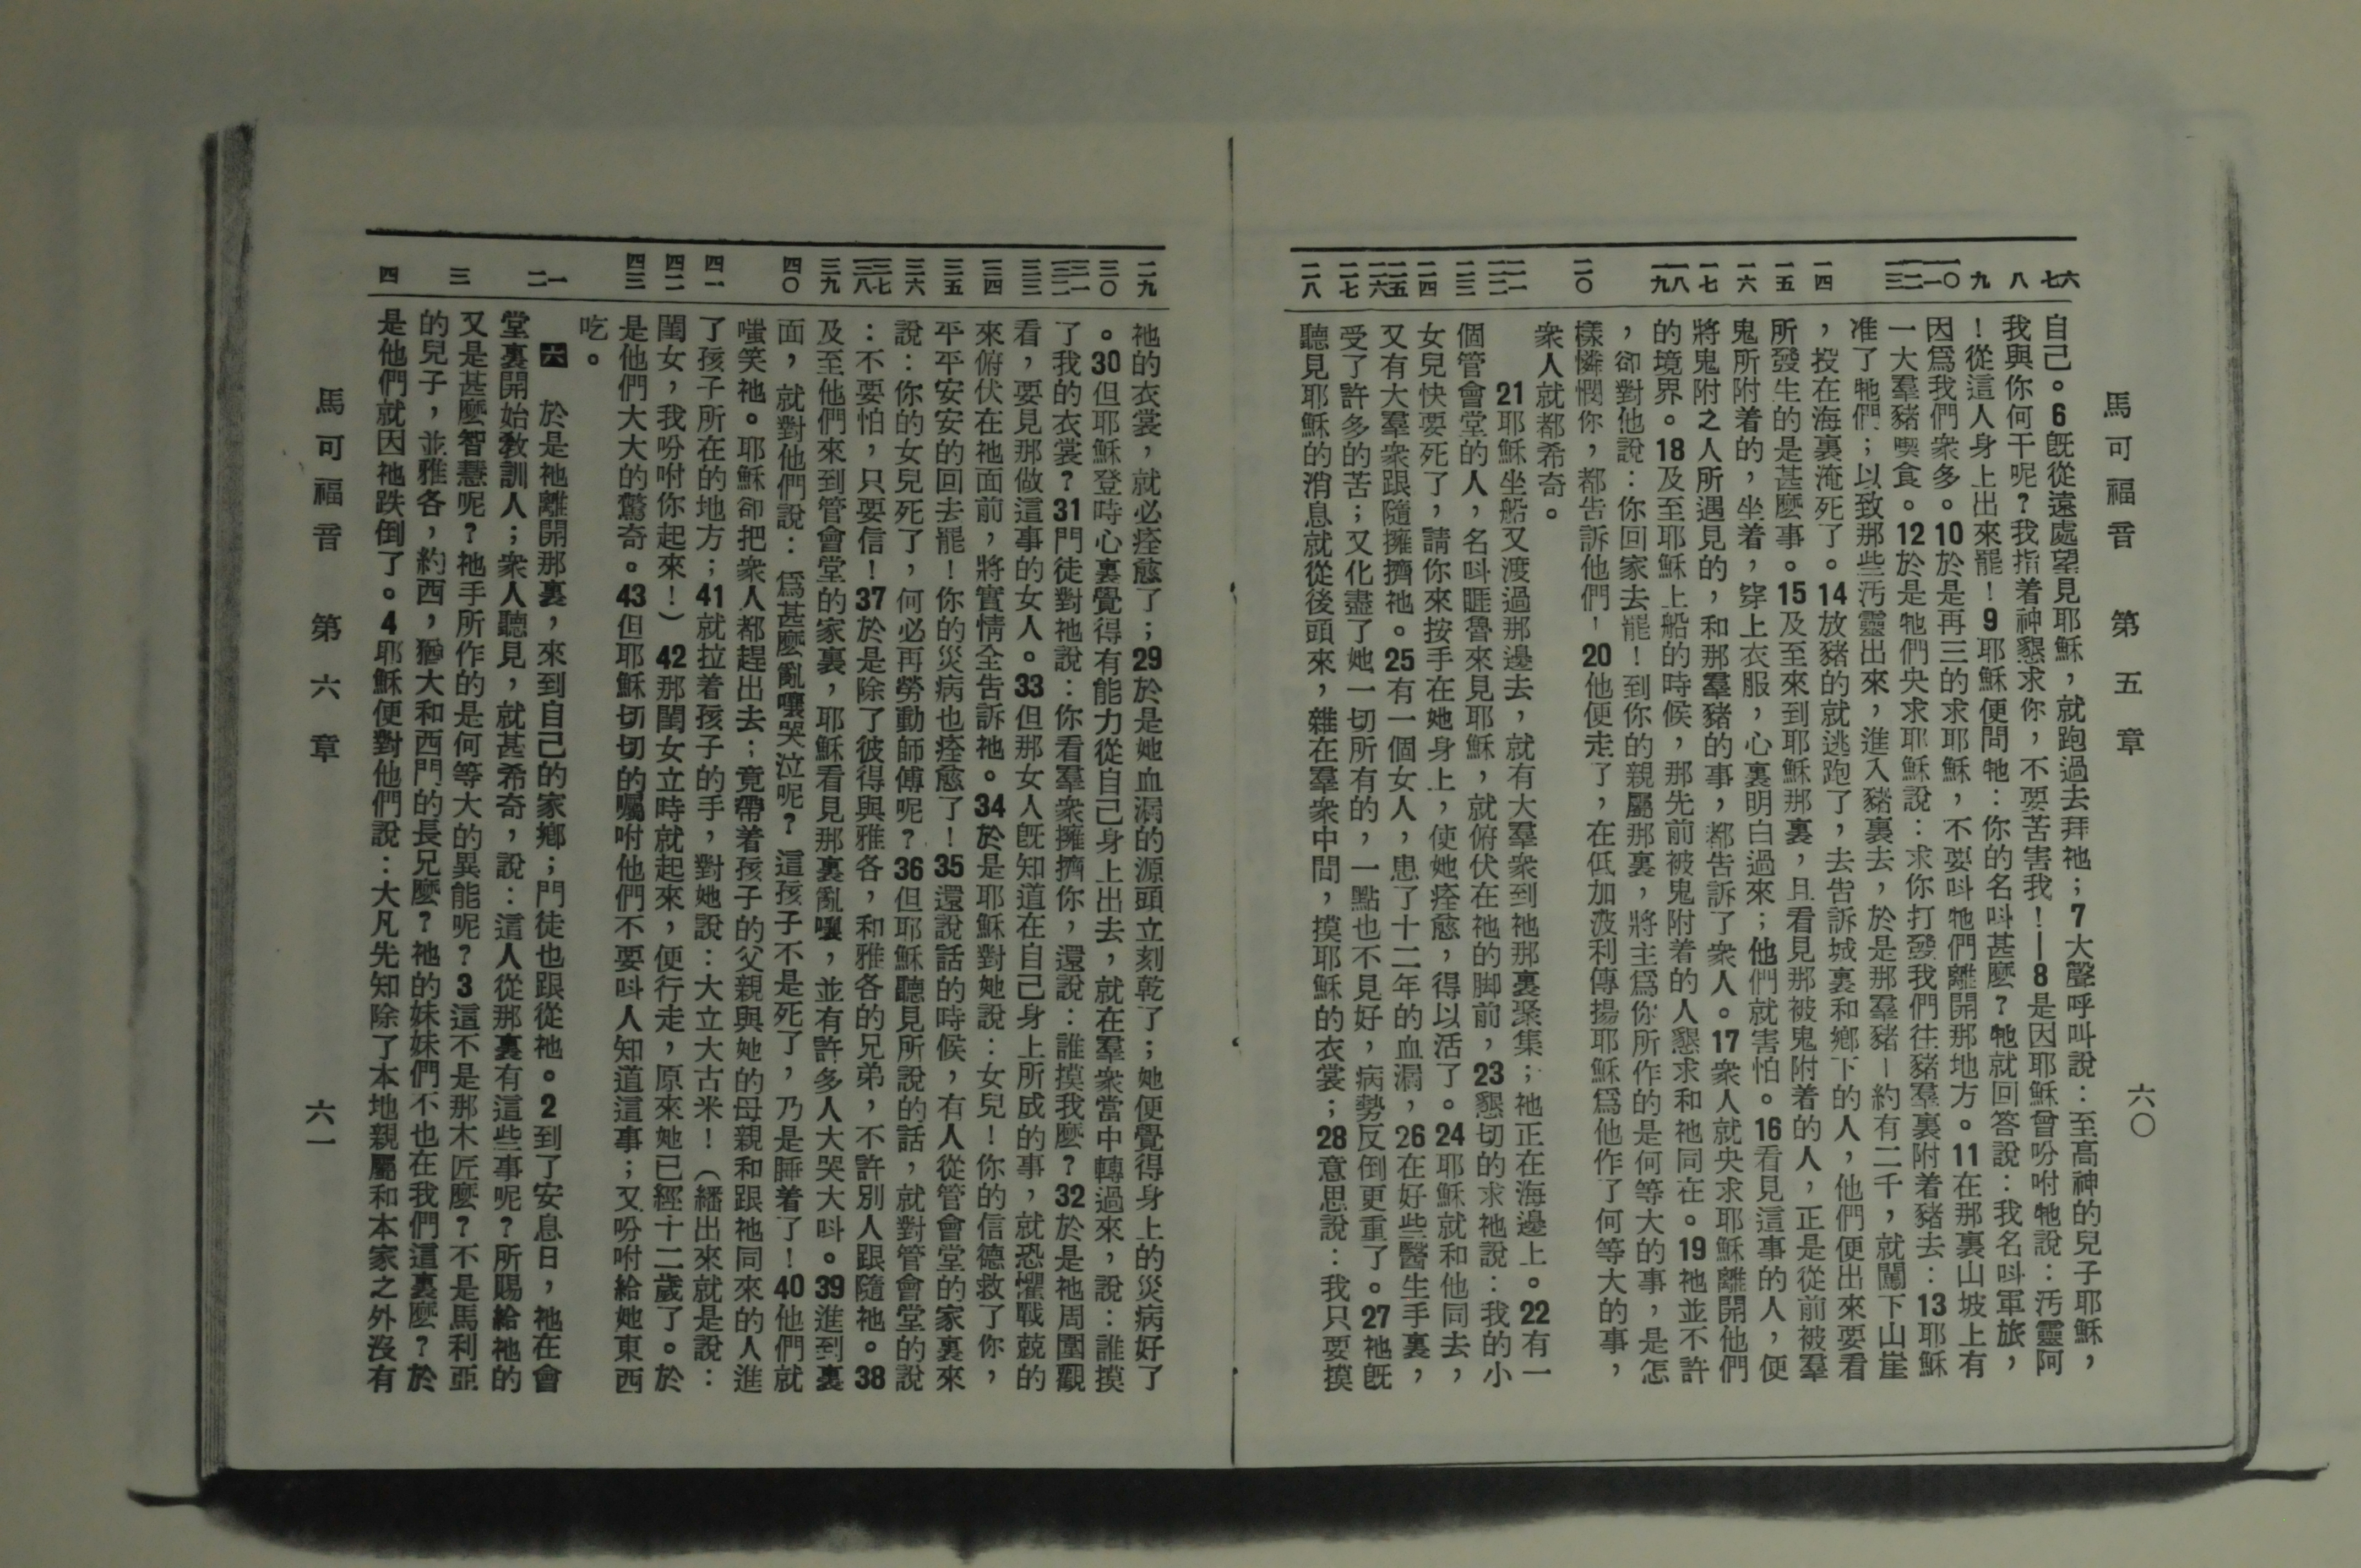 馬可福音　第五章　六〇
六
七
八
九
一〇
一一
一二
一三
一四
一五
一六
一七
一八
一九
二〇
二一
二二
二三
二四
二五
二六
二七
二八
自己。6既從遠處望見耶穌，就跑過去拜祂；7大聲呼叫說：至高神的兒子耶穌，
我與你何干呢？我指着神懇求你，不要苦害我！—8是因耶穌曾吩咐牠說：汚靈阿
！從這人身上出來罷！9耶穌便問牠：你的名叫甚麼？牠就回答說：我名叫軍旅，
因爲我們衆多。10於是再三的求耶穌，不要叫牠們離開那地方。11在那裏山坡上有
一大羣豬喫食。12於是牠們央求耶穌說：求你打發我們往豬羣裏附着豬去：13耶穌
准了牠們；以致那些汚靈出來，進入豬裏去，於是那羣豬－約有二千，就闖下山崖
，投在海裏淹死了。14放豬的就逃跑了，去告訴城裏和鄉下的人，他們便出來要看
所發生的是甚麼事。15及至來到耶穌那裏，且看見那被鬼附着的人，正是從前被羣
鬼所附着的，坐着，穿上衣服，心裏明白過來；他們就害怕。16看見這事的人，便
將鬼附之人所遇見的，和那羣豬的事，都告訴了衆人。17衆人就央求耶穌離開他們
的境界。18及至耶穌上船的時候，那先前被鬼附着的人懇求和祂同在。19祂並不許
，卻對他說：你回家去罷！到你的親屬那裏，將主爲你所作的是何等大的事，是怎
樣憐憫你，都告訴他們，20他便走了，在低加波利傳揚耶穌爲他作了何等大的事，
衆人就都希奇。
21耶穌坐船又渡過那邊去，就有大羣衆到祂那裏聚集；祂正在海邊上。22有一
個管會堂的人，名叫睚魯來見耶穌，就俯伏在祂的脚前，23懇切的求祂說：我的小
女兒快要死了，請你來按手在她身上，使她痊愈，得以活了。24耶穌就和他同去，
又有大羣衆跟隨擁擠祂。25有一個女人，患了十二年的血漏，26在好些醫生手裏，
受了許多的苦；又化盡了她一切所有的，一點也不見好，病勢反倒更重了。27祂旣
聽見耶穌的消息就從後頭來，雜在羣衆中間，摸耶穌的衣裳；28意思說：我只要摸
二九
三〇
三一
三二
三三
三四
三五
三六
三七
三八
三九
四〇
四一
四二
四三
一
二
三
四
祂的衣裳，就必痊愈了；29於是她血漏的源頭立刻乾了；她便覺得身上的災病好了
。30但耶穌登時心裏覺得有能力從自己身上出去，就在羣衆當中轉過來，說：誰摸
了我的衣裳？31門徒對祂說：你看羣衆擁擠你，還說：誰摸我麼？32於是祂周圍觀
看，要見那做這事的女人。33但那女人旣知道在自己身上所成的事，就恐懼戰兢的
來俯伏在祂面前，將實情全告訴祂。34於是耶穌對她說：女兒！你的信德救了你，
平平安安的回去罷！你的災病也痊愈了！35還說話的時候，有人從管會堂的家裏來
說：你的女兒死了，何必再勞動師傅呢？36但耶穌聽見所說的話，就對管會堂的說
：不要怕，只要信！37於是除了彼得與雅各，和雅各的兄弟，不許別人跟隨祂。38
及至他們來到管會堂的家裏，耶穌看見那裏亂嚷，並有許多人大哭大叫。39進到裏
面，就對他們說：爲甚麼亂嚷哭泣呢？這孩子不是死了，乃是睡着了！40他們就
嗤笑祂。耶穌卻把衆人都趕出去；竟帶着孩子的父親與她的母親和跟祂同來的人進
了孩子所在的地方；41就拉着孩子的手，對她說：大立大古米！（繙出來就是說：
閨女，我吩咐你起來！）42那閨女立時就起來，便行走，原來她已經十二歲了。於
是他們大大的驚奇。43但耶穌切切的囑咐他們不要叫人知道這事；又吩咐給她東西
吃。
六　於是祂離開那裏，來到自己的家鄉；門徒也跟從祂。2到了安息日，祂在會
堂裏開始敎訓人；衆人聽見，就甚希奇，說：這人從那裏有這些事呢？所賜給祂的
又是甚麼智慧呢？祂手所作的是何等大的異能呢？3這不是那木匠麼？不是馬利亞
的兒子，並雅各，約西，猶大和西門的長兄麼？祂的妹妹們不也在我們這裏麼？於
是他們就因祂跌倒了。4耶穌便對他們說：大凡先知除了本地親屬和本家之外沒有
馬可福音　第六章　六一